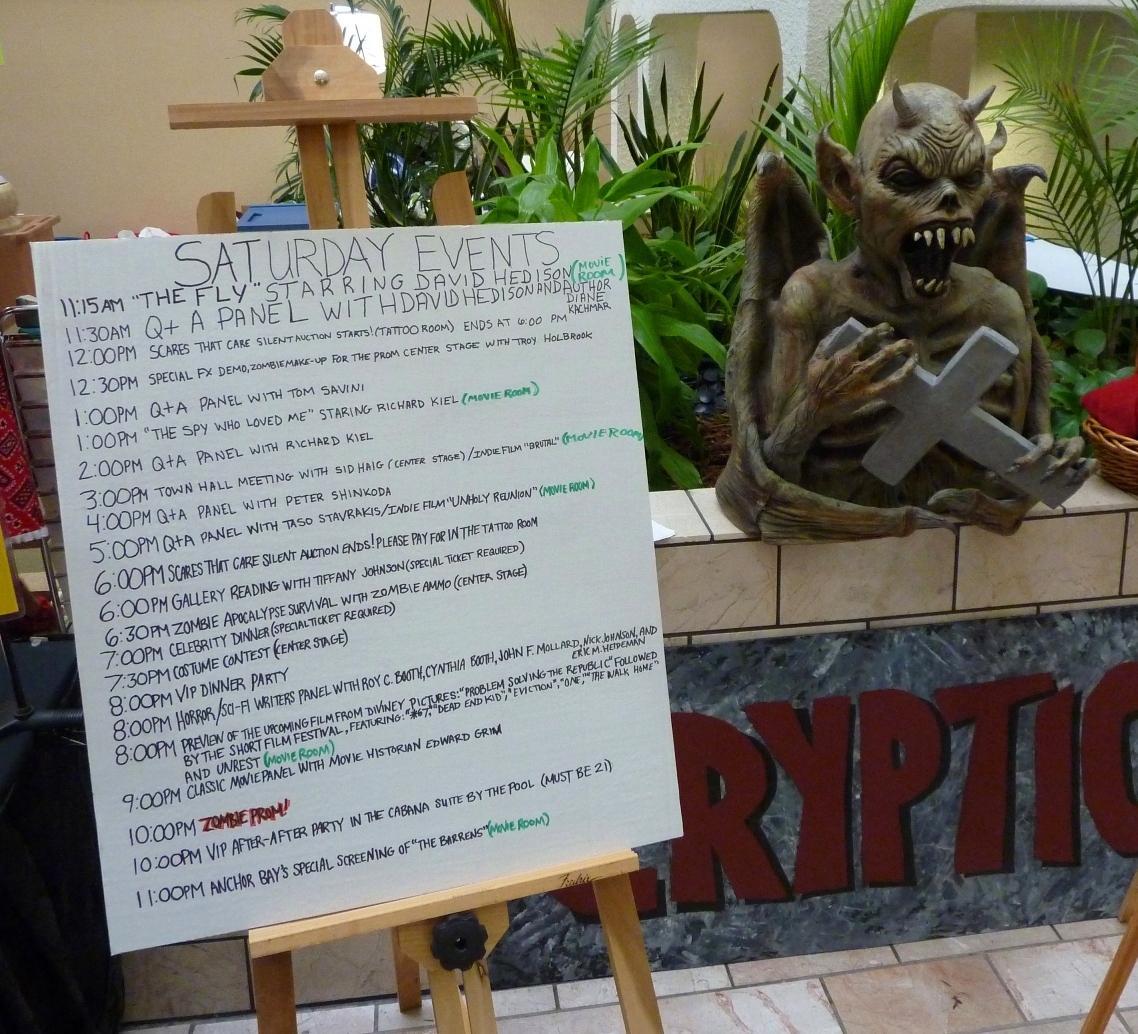 SATURDAY EVENTS
11:15AM "THE FLY" STARRING DAVID HEDISON (MOVIE ROOM)
11:30AM Q+A PANEL WITH DAVID HEDISON AND AUTHOR DIANE KACHMAR
12:00PM SCARES THAT CARE SILENT AUCTION STARTS! (TATTOO ROOM) ENDS AT 6:00 PM
12:30PM SPECIAL FX DEMO, ZOMBIE MAKE-UP FOR THE PROM CENTER STAGE WITH TROY HOLBROOK
1:00PM Q+A PANEL WITH TOM SAVINI
1:00PM "THE SPY WHO LOVED ME" STARING RICHARD KIEL (MOVIE ROOM)
2:00PM Q+A PANEL WITH RICHARD KIEL
3:00PM TOWN HALL MEETING WITH SID HAIG (CENTER STAGE) / INDIE FILM "BRUTAL" (MOVIE ROOM)
4:00PM Q+A PANEL WITH PETER SHINKODA
5:00PM Q+A PANEL WITH TASO STAVRAKIS / INDIE FILM "UNHOLY REUNION" (MOVIE ROOM)
6:00PM SCARES THAT CARE SILENT AUCTION ENDS! PLEASE PAY FOR IN THE TATTOO ROOM
6:00PM GALLERY READING WITH TIFFANY JOHNSON (SPECIAL TICKET REQUIRED)
6:30PM ZOMBIE APOCALYPSE SURVIVAL WITH ZOMBIE AMMO (CENTER STAGE)
7:00PM CELEBRITY DINNER (SPECIAL TICKET REQUIRED)
7:30PM COSTUME CONTEST (CENTER STAGE)
8:00PM VIP DINNER PARTY
8:00PM HORROR/SCI-FI WRITERS PANEL WITH ROY C. BOOTH, CYNTHIA BOOTH, JOHN F. MOLLARD, NICK JOHNSON, AND ERIC M. HEIDEMAN
8:00PM PREVIEW OF THE UPCOMING FILM FROM DIVINEY PICTURES: "PROBLEM SOLVING THE REPUBLIC" FOLLOWED
BY THE SHORT FILM FESTIVAL, FEATURING: "*67," "DEAD END KID", "EVICTION", "ONE", "THE WALK HOME"
AND UNREST (MOVIE ROOM)
9:00PM CLASSIC MOVIE PANEL WITH MOVIE HISTORIAN EDWARD GRIM
10:00PM ZOMBIE PROM!
10:00PM VIP AFTER-AFTER PARTY IN THE CABANA SUITE BY THE POOL (MUST BE 21)
11:00PM ANCHOR BAY'S SPECIAL SCREENING OF "THE BARRENS" (MOVIE ROOM)
CRYPTIC